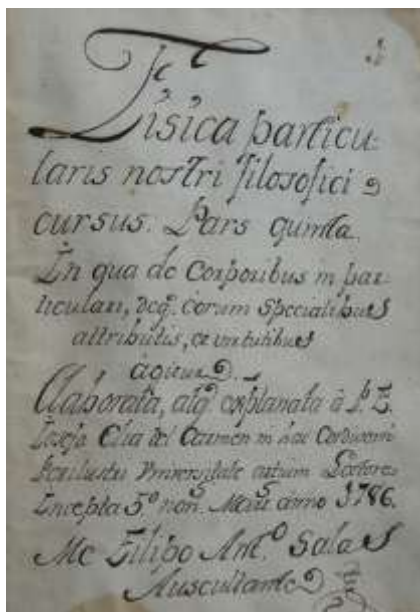 Fisica particu-
laris nostri filosofici
cursus. Pars quinta.
In qua de Corporibus in par-
ticulari, deq. eorum Specialibus
attributis, et virtutibus
agitur.
Elaborata, atq. explanata à P. F.
Elia del Carmen in hac Cordubensi
Universitate artium Lectore
Incepta 5º non. Maii anno 1786.
Me Filipo Antº Salas
Auscultante